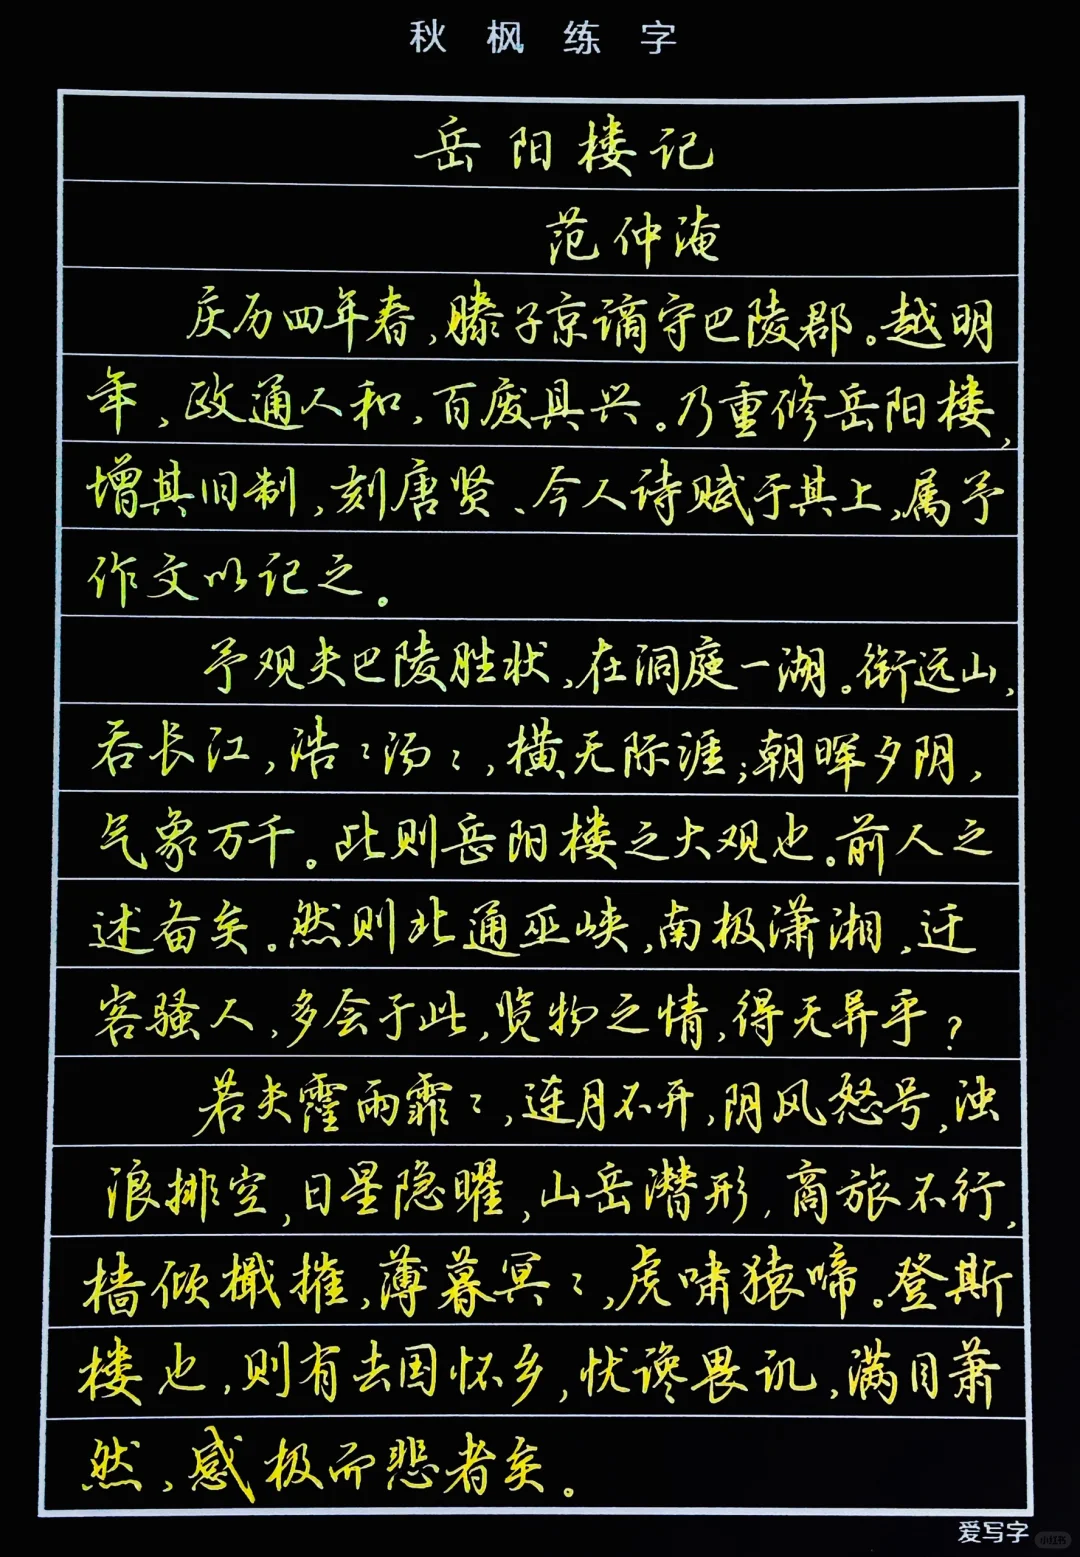 秋枫练字
岳阳楼记
范仲淹
庆历四年春,滕子京谪守巴陵郡。越明
年,政通人和,百废具兴。乃重修岳阳楼,
增其旧制,刻唐贤、今人诗赋于其上,属予
作文以记之。
予观夫巴陵胜状,在洞庭一湖。衔远山,
吞长江,浩〻汤〻,横无际涯;朝晖夕阴,
气象万千。此则岳阳楼之大观也。前人之
述备矣。然则北通巫峡,南极潇湘,迁
客骚人,多会于此,览物之情,得无异乎?
若夫霪雨霏〻,连月不开,阴风怒号,浊
浪排空,日星隐曜,山岳潜形,商旅不行,
樯倾檝摧,薄暮冥〻,虎啸猿啼。登斯
楼也,则有去国怀乡,忧谗畏讥,满目萧
然,感极而悲者矣。
爱写字
小红书